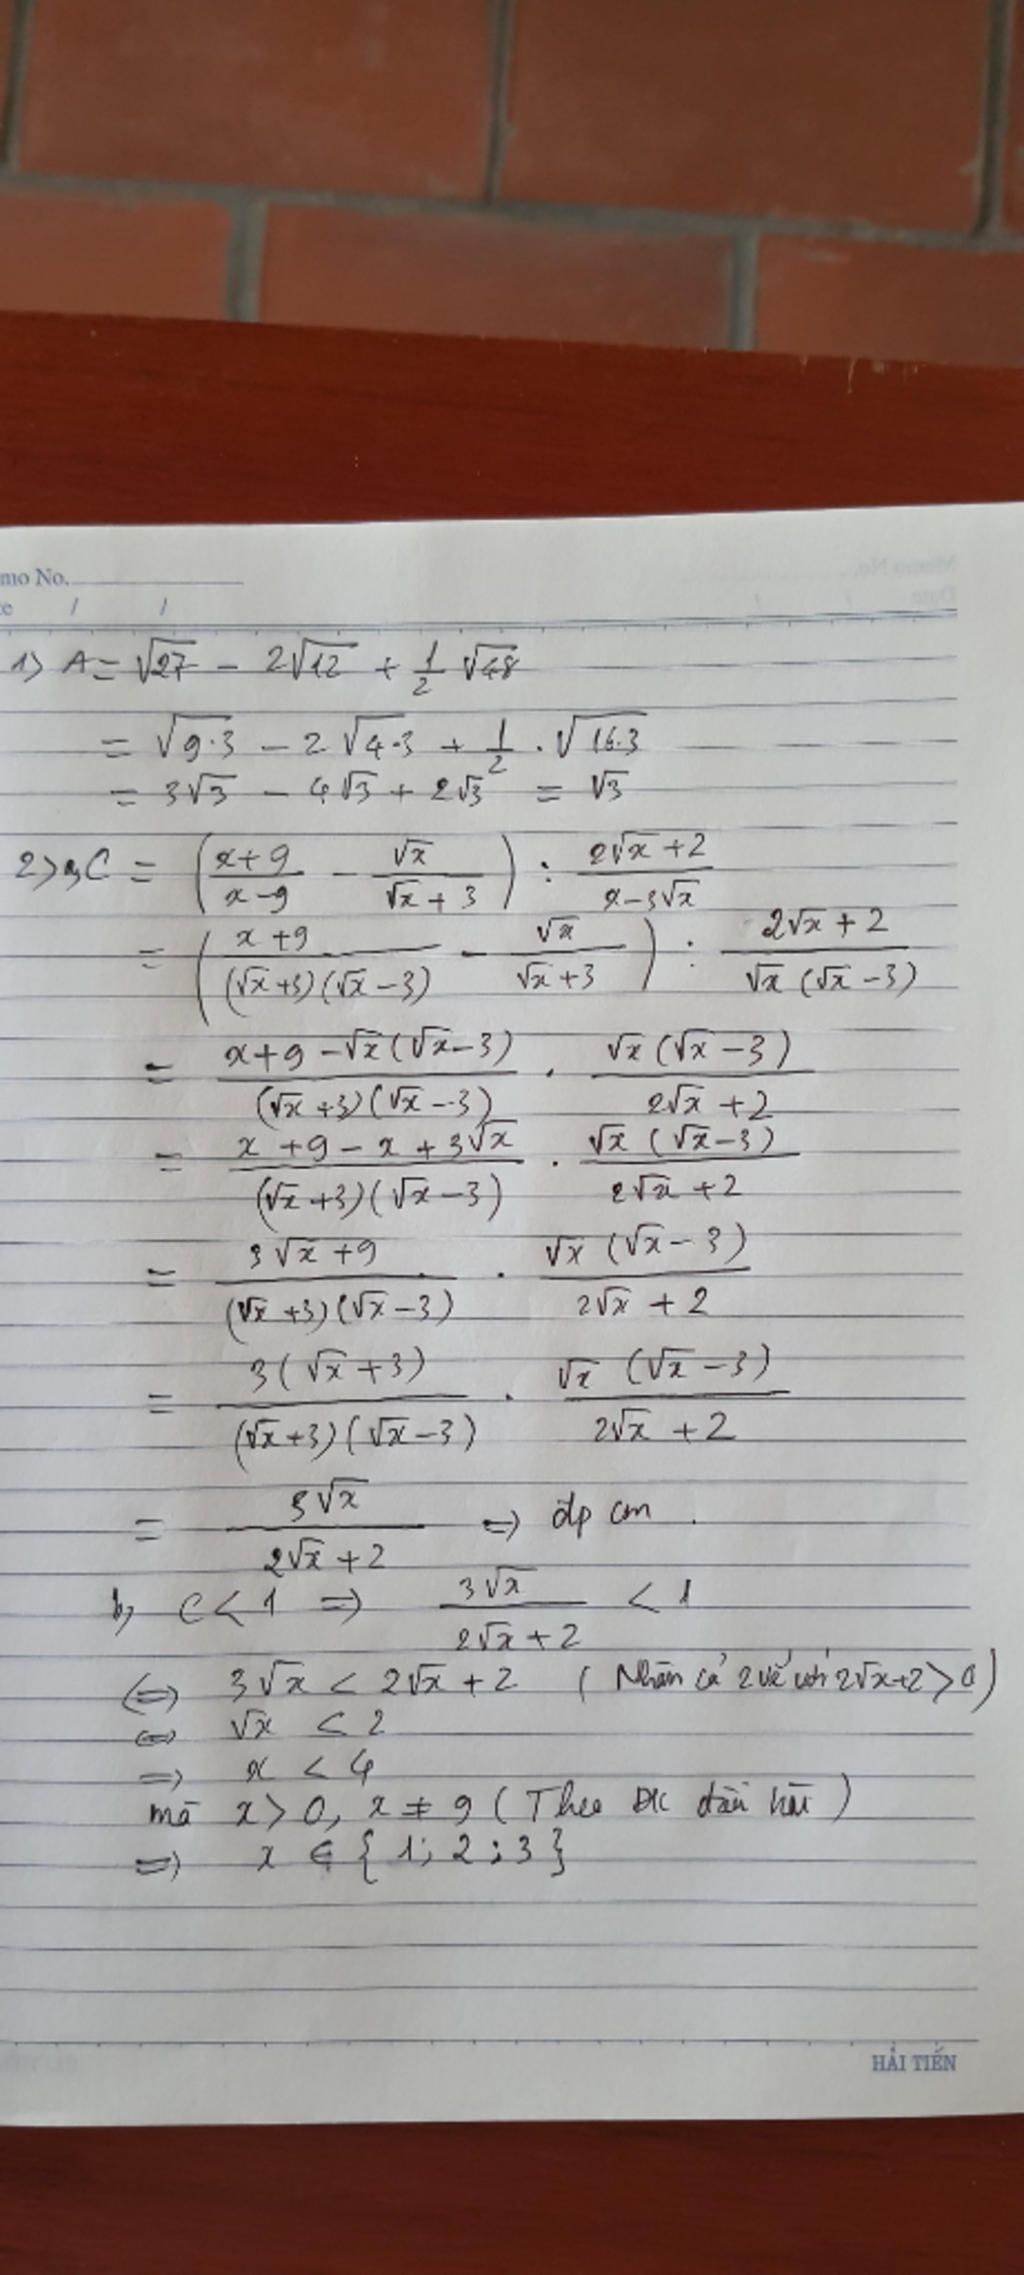 mo No.
te / /
1) A = √27 - 2√12 + 1/2 √48
= √9.3 - 2√4.3 + 1/2 . √16.3
= 3√3 - 4√3 + 2√3 = √3
2) a, C = ( (x+9)/(x-9) - √x/(√x+3) ) : (2√x+2)/(x-3√x)
= ( (x+9)/((√x+3)(√x-3)) - √x/(√x+3) ) : (2√x+2)/(√x(√x-3))
= (x+9-√x(√x-3))/((√x+3)(√x-3)) . (√x(√x-3))/(2√x+2)
= (x+9-x+3√x)/((√x+3)(√x-3)) . (√x(√x-3))/(2√x+2)
= (3√x+9)/((√x+3)(√x-3)) . (√x(√x-3))/(2√x+2)
= (3(√x+3))/((√x+3)(√x-3)) . (√x(√x-3))/(2√x+2)
= 3√x/(2√x+2) => đpcm.
b, C < 1 => 3√x/(2√x+2) < 1
<=> 3√x < 2√x + 2 (Nhân cả 2 vế với 2√x+2 > 0)
<=> √x < 2
=> x < 4
mà x > 0, x ≠ 9 (Theo ĐK đầu bài)
=> x ∈ {1; 2; 3}
HẢI TIẾN